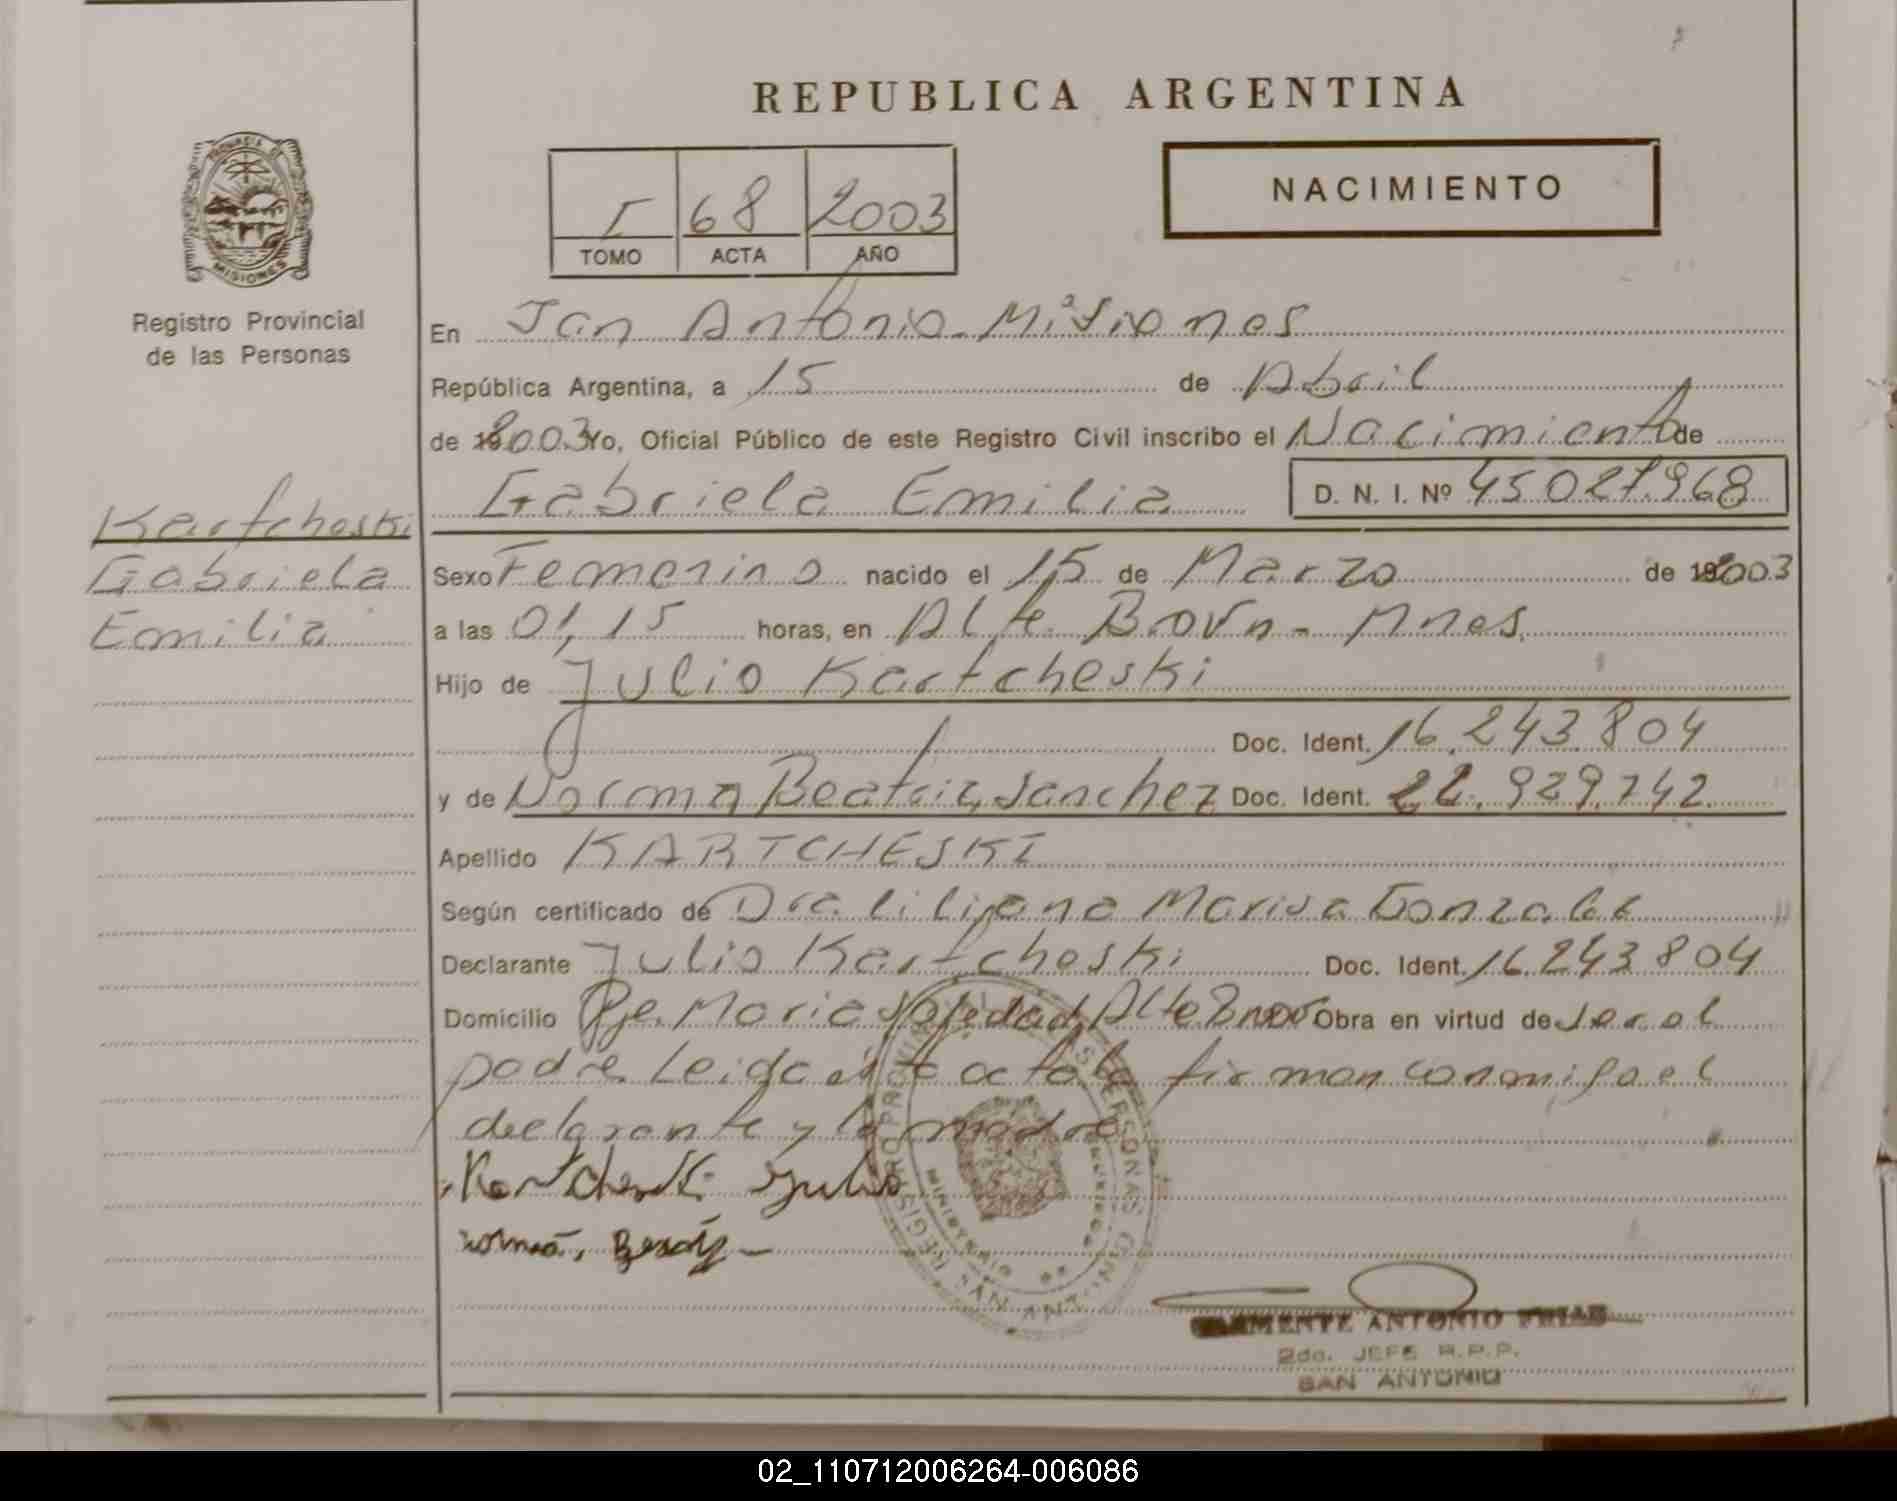 REPUBLICA ARGENTINA
PROVINCIA DE
MISIONES
Registro Provincial
de las Personas
I 68 2003
TOMO ACTA AÑO
NACIMIENTO
En San Antonio - Misiones
República Argentina, a 15 de Abril
de 2003 Yo, Oficial Público de este Registro Civil inscribo el Nacimiento de
Gabriela Emilia D. N. I. Nº 45027.968
Kartcheski
Gabriela
Emilia
Sexo Femenino nacido el 15 de Marzo de 2003
a las 01,15 horas, en Alte. Brown - Mnes.
Hijo de Julio Kartcheski
Doc. Ident. 16.243.804
y de Norma Beatriz Sanchez Doc. Ident. 22.929.742
Apellido KARTCHESKI
Según certificado de Dra Liliana Marisa Gonzalez
Declarante Julio Kartcheski Doc. Ident. 16.243.804
Domicilio Pje. Maria Soledad, Alte Obra en virtud de ser el
padre. Leida el acta la firman conmigo el
declarante y la madre
Kartcheski Julio
REGISTRO PROVINCIAL PERSONAS
MINISTERIO DE
SAN ANT
ANTONIO FRIAS
2do. JEFE R.P.P.
SAN ANTONIO
02_110712006264-006086